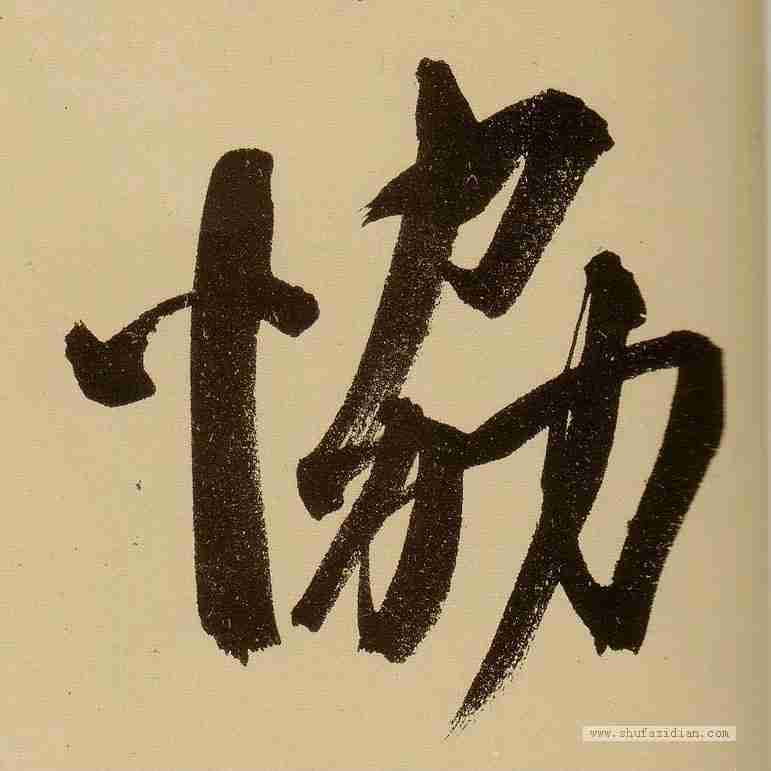 恊
www.shufazidian.com